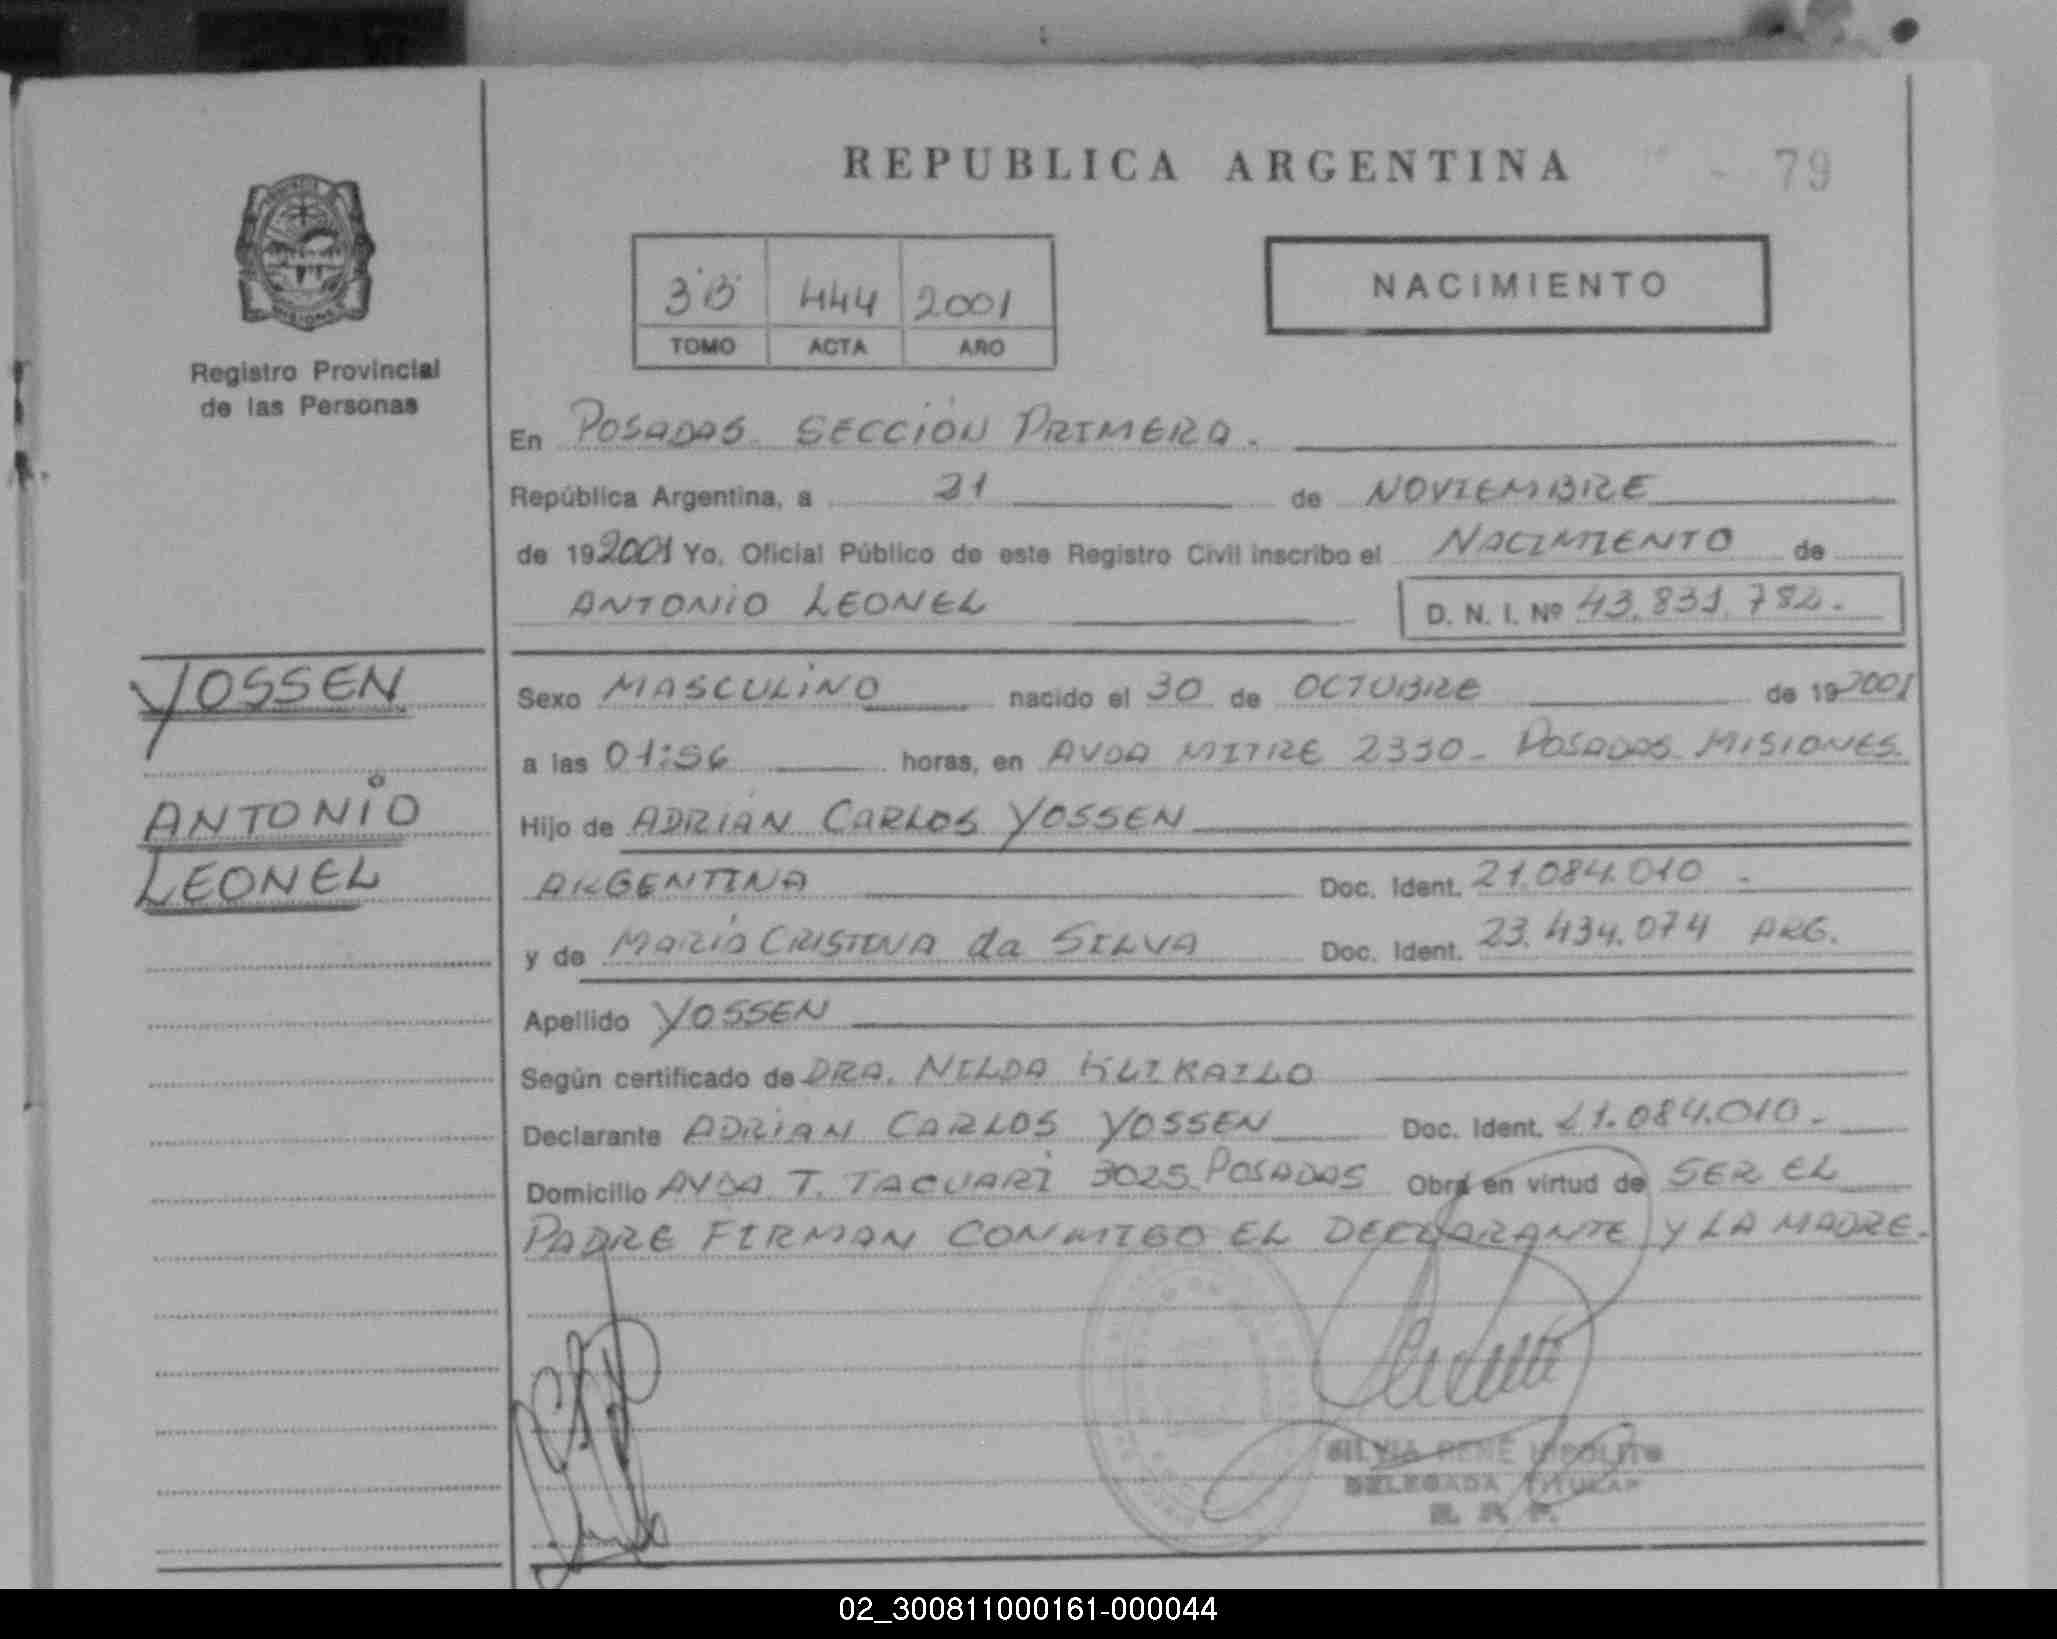 REPUBLICA ARGENTINA
79
3"B" 444 2001
TOMO ACTA AÑO
NACIMIENTO
Registro Provincial
de las Personas
En POSADAS. SECCIÓN PRIMERA.
República Argentina, a 21 de NOVIEMBRE
de 192001 Yo, Oficial Público de este Registro Civil inscribo el NACIMIENTO de
ANTONIO LEONEL D. N. I. Nº 43.831.782.
YOSSEN
Sexo MASCULINO nacido el 30 de OCTUBRE de 192001
a las 01:56 horas, en AVDA MITRE 2330- POSADAS MISIONES
ANTONIO
Hijo de ADRIÁN CARLOS YOSSEN
LEONEL
ARGENTINA Doc. Ident. 21.084.010 -
y de MARÍA CRISTINA da SILVA Doc. Ident. 23.434.074 ARG.
Apellido YOSSEN
Según certificado de DRA. NILDA KLIKAILO
Declarante ADRIAN CARLOS YOSSEN Doc. Ident. 21.084.010.-
Domicilio AVDA T. TACUARÍ 3025 POSADAS Obra en virtud de SER EL
PADRE FIRMAN CONMIGO EL DECLARANTE y LA MADRE.
SILVIA RENÉ HIPOLITO
DELEGADA TITULAR
R. P. P.
02_300811000161-000044